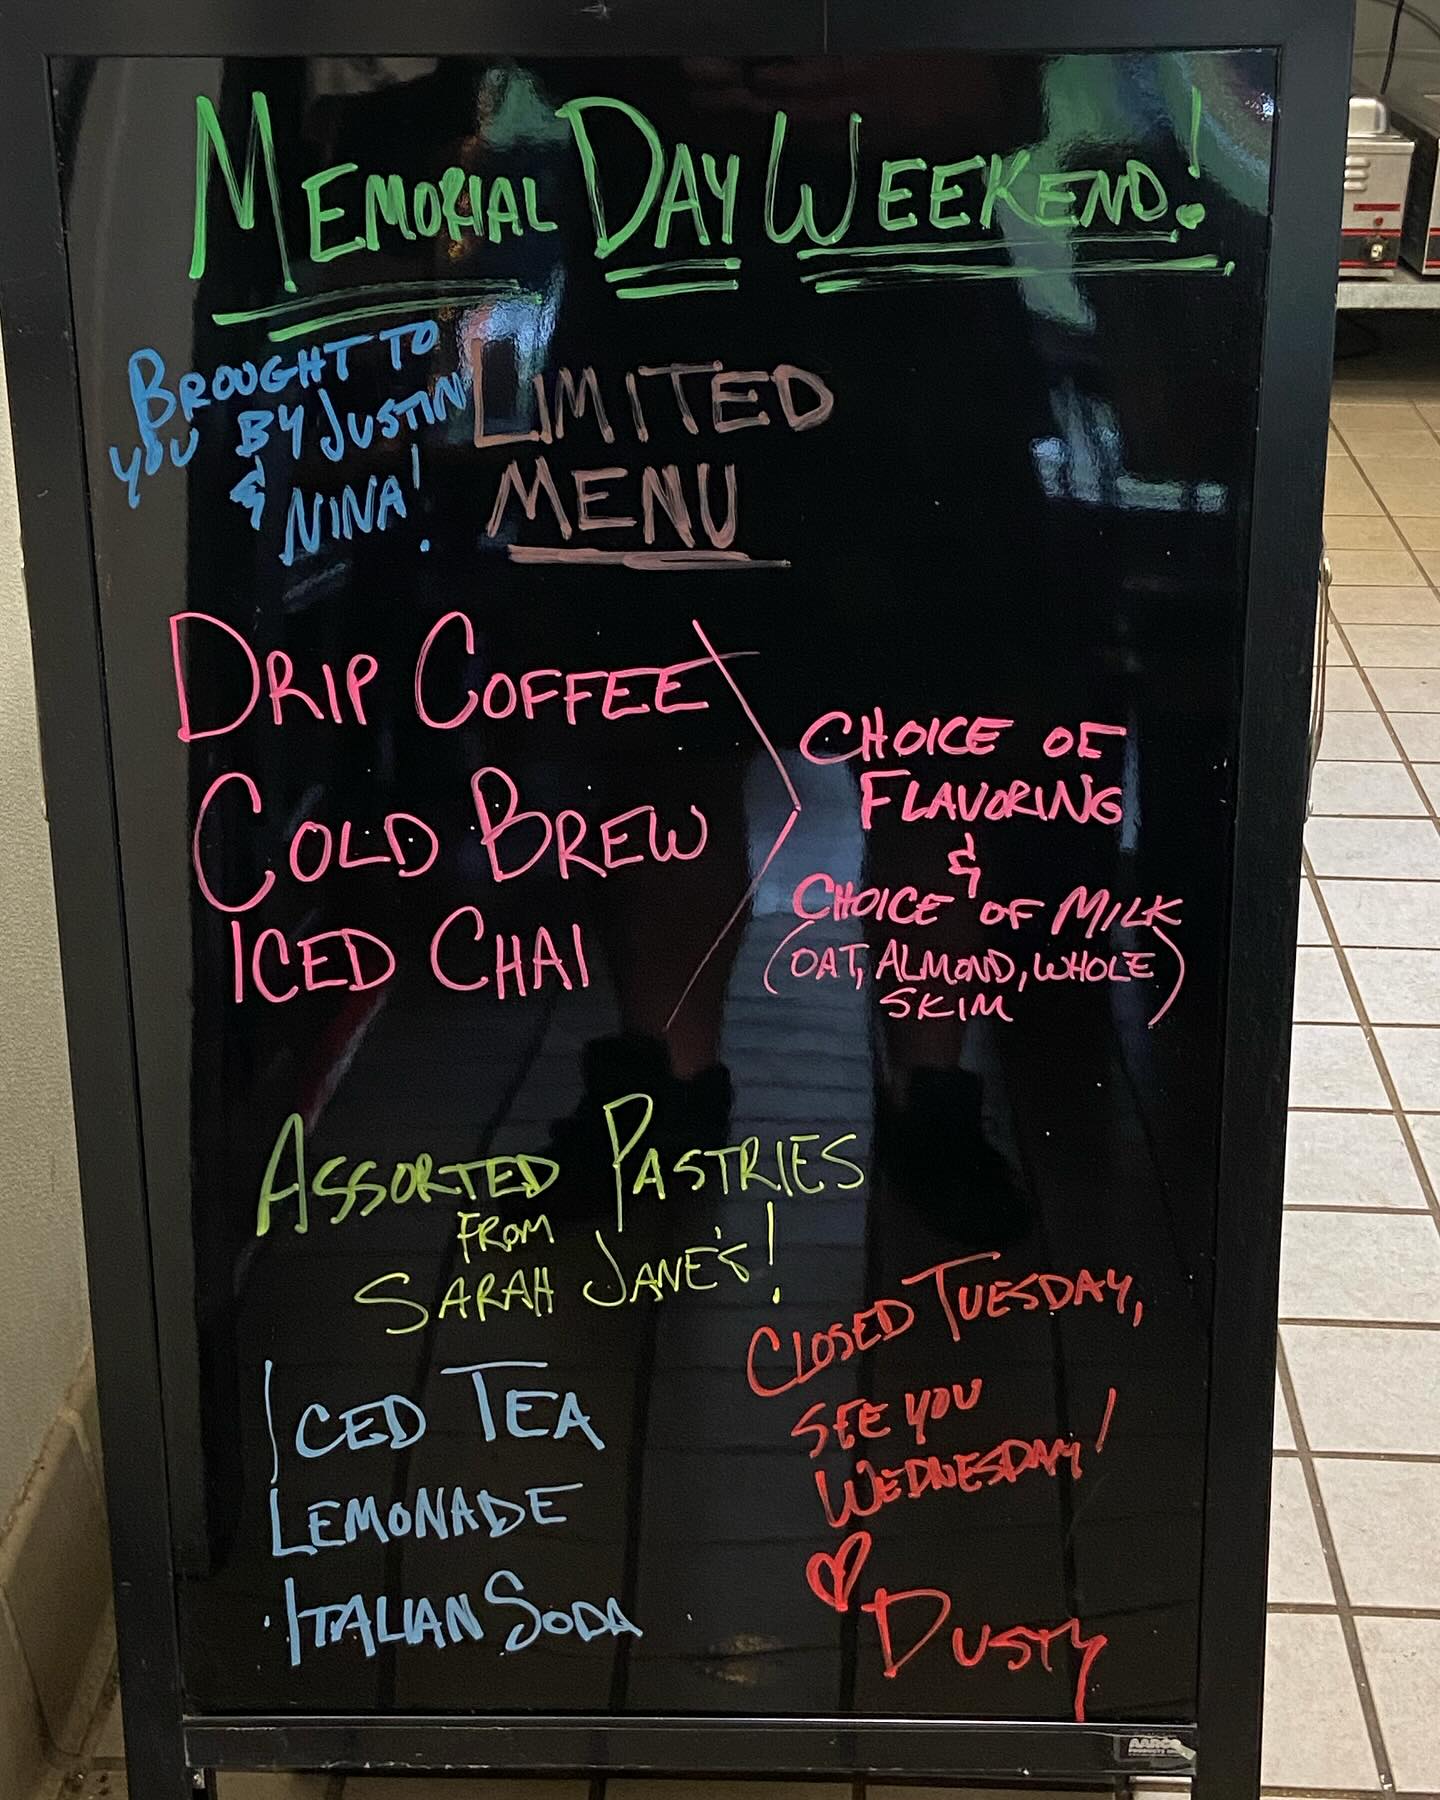 MEMORIAL DAY WEEKEND!
BROUGHT TO
YOU BY JUSTIN
& NINA!
LIMITED
MENU
DRIP COFFEE
COLD BREW
ICED CHAI
CHOICE OF
FLAVORING
&
CHOICE OF MILK
(OAT, ALMOND, WHOLE)
SKIM
ASSORTED PASTRIES
FROM
SARAH JANE'S!
ICED TEA
LEMONADE
ITALIAN SODA
CLOSED TUESDAY,
SEE YOU
WEDNESDAY!
♡ DUSTY
AARCO